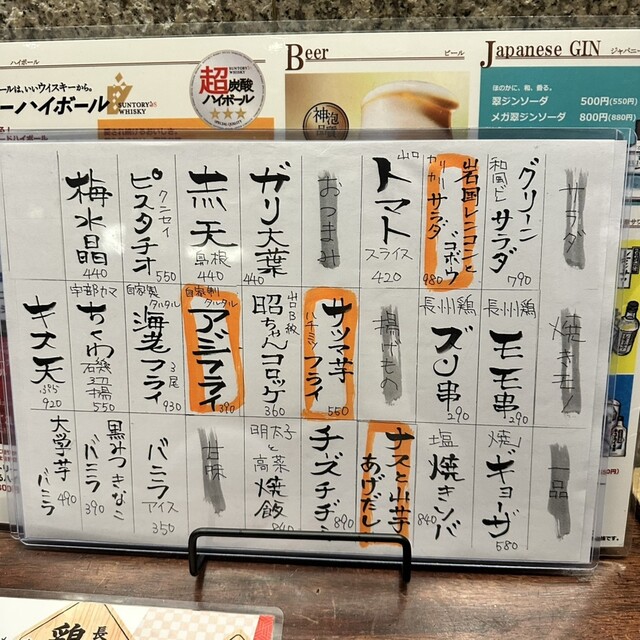 ハイボール
ールは、いいウイスキーから。
ーハイボール
SUNTORY
WHISKY
SUNTORY
WHISKY
超炭酸
ハイボール
Beer
ビール
神泡
Japanese GIN
ほのかに、和、香る。
翠ジンソーダ 500円(550円)
メガ翠ジンソーダ 800円(880円)
サラダ
グリーン
サラダ
790
和風ビ
岩国レンコンと
ゴボウ
カリカリ
サラダ
980
山口
トマト
スライス
420
おつまみ
ガリ大葉
440
赤天
島根
440
クンセイ
ピスタチオ
550
梅水晶
440
焼きモノ
長州鶏
モモ串
290
長州鶏
ズリ串
290
揚げもの
サツマ芋
ハチミツ
フライ
550
山口B級
昭ちゃんコロッケ
360
自家製タルタル
アジフライ
390
自家製タルタル
海老フライ
3尾
930
宇部カマ
ちくわ
石磯
揚
550
キス天
920
一品
焼
ギョーザ
580
塩
焼きソバ
840
ナスと山芋
あげだし
チーズチヂミ
890
明太子
と
高菜
焼飯
840
甘味
バニラ
アイス
350
黒みつきなこ
バニラ
390
大学芋
バニラ
490
長
鶏